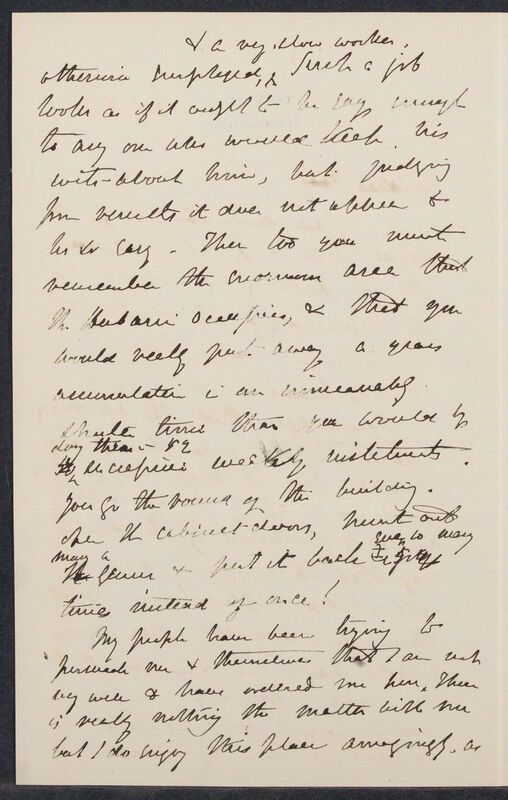 & a very slow worker.
otherwise employed, & Such a job
looks as if it ought to be easy enough
to any one who would keep his
wits about him, but judging
from results it does not appear to
be so easy. Then too you must
remember the enormous area that
the Herbarium occupies, & that you
would really put away a years
accumulation in an immeasurably
shorter time than you would by
doing them
weekly instalments.
You go the round of the building.
open the cabinet doors, hunt out
many a genus & put it back ever so many
times instead of once!
My people have been trying to
persuade me & themselves that I am not
very well & have ordered me here. There
is really nothing the matter with me
but I do enjoy this place amazingly. as